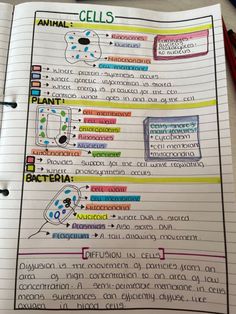 CELLS
ANIMAL:
Ribosomes
Nucleus
Mitochondria
Cell membrane
Where protein synthesis occurs
Where genetic information is stored
Where energy is produced for the cell
Controls what goes in and out of the cell
PLANT:
Cell membrane
Cell wall
Chloroplasts
Ribosomes
Nucleus
Mitochondria
Vacuole
Cytoplasm
Cell membrane
Mitochondria
Provides support for the cell while regulating
Where photosynthesis occurs
BACTERIA:
Cell wall
Cell membrane
Mitochondria
Nucleoid → Where DNA is stored
Plasmids → Also stores DNA
Flagellum → A tail allowing movement
DIFFUSION IN CELLS
Diffusion is the movement of particles from an
area of high concentration to an area of low
concentration. A semi-permeable membrane in cells
means substances can efficiently diffuse, like
oxygen in blood cells.